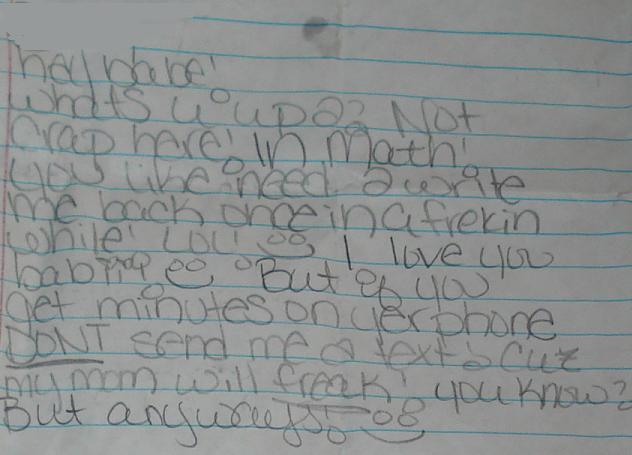 hey babe!
whats u up 2? Not
crap here! In math!
you like need 2 write
me back once in a frekin
while! LOL! I love you
bab But if you
get minutes on yer phone
DONT send me a text cuz
my mom will freak! you know?
But anyways